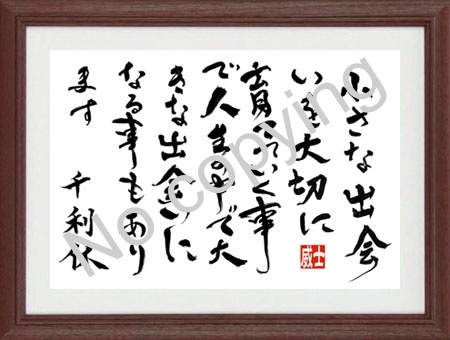 小さな出会
いを大切に
育てていく事
で人生の中で大
きな出会いに
なる事もあり
ます 千利休
No copying